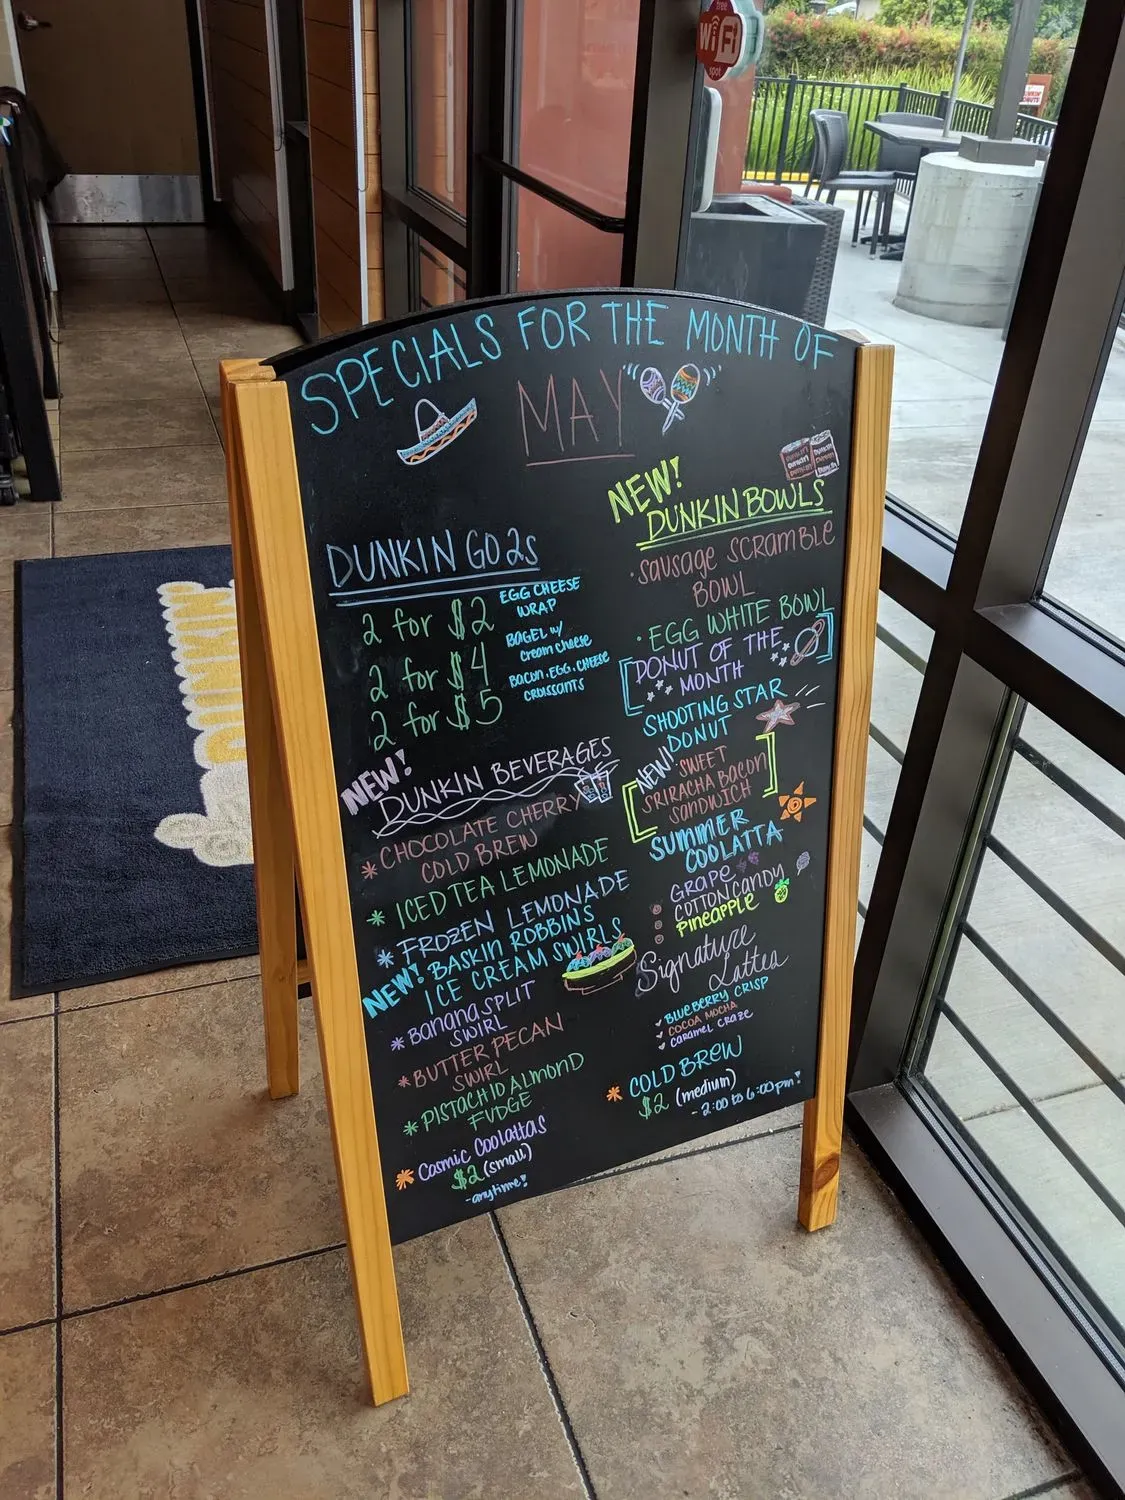 free
WiFi
spot
SPECIALS FOR THE MONTH OF
MAY
DUNKIN GO2s
2 for $2 EGG CHEESE WRAP
2 for $4 BAGEL w/ cream cheese
2 for $5 BACON, EGG, CHEESE CROISSANTS
NEW!
DUNKIN BEVERAGES
* CHOCOLATE CHERRY
COLD BREW
* ICED TEA LEMONADE
* FROZEN LEMONADE
NEW! BASKIN ROBBINS
ICE CREAM SWIRLS
* BANANA SPLIT
SWIRL
* BUTTER PECAN
SWIRL
* PISTACHIO ALMOND
FUDGE
* COSMIC COOLATTAS
$2 (small)
- anytime!
NEW!
DUNKIN BOWLS
· SAUSAGE SCRAMBLE
BOWL
· EGG WHITE BOWL
DONUT OF THE
MONTH
SHOOTING STAR
DONUT
NEW! SWEET
SRIRACHA BACON
SANDWICH
SUMMER
COOLATTA
GRAPE
COTTON CANDY
PINEAPPLE
Signature
Lattea
BLUEBERRY CRISP
COCOA MOCHA
CARAMEL CRAZE
* COLD BREW
$2 (medium)
- 2:00 to 6:00 pm!
DUNKIN'